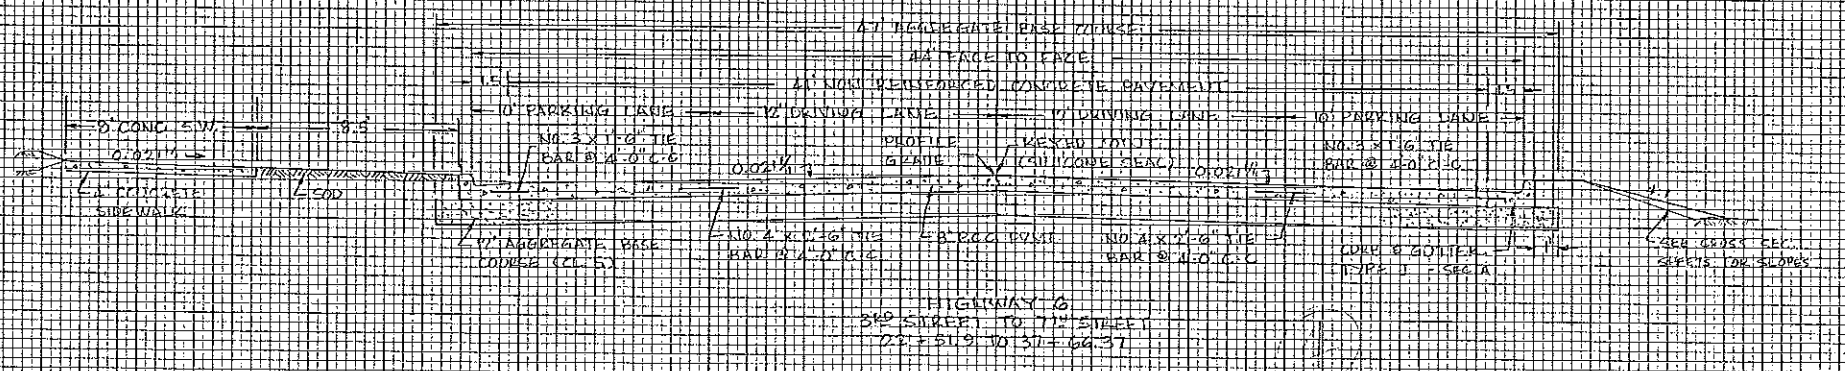 47' AGGREGATE BASE COURSE
44' FACE TO FACE
1.5'
41' NON REINFORCED CONCRETE PAVEMENT
1.5'
10' PARKING LANE
12' DRIVING LANE
12' DRIVING LANE
10' PARKING LANE
8' CONC. S.W.
8.5'
NO. 3 X 1'-6" TIE
BAR @ 4'-0" C-C
PROFILE
GRADE
KEYED JOINT
(SILICONE SEAL)
NO. 3 X 1'-6" TIE
BAR @ 4'-0" C-C
0.021'/'
0.021'/'
0.021'/'
CONCRETE
SIDEWALK
SOD
AGGREGATE BASE
COURSE (CL. 5)
NO. 4 X 2'-6" TIE
BAR @ 4'-0" C-C
P.C.C. PVMT.
NO. 4 X 2'-6" TIE
BAR @ 4'-0" C-C
CURB & GUTTER
TYPE 1 - SEC A
SEE CROSS SEC.
SHEETS FOR SLOPES
HIGHWAY 6
3RD STREET TO 7TH STREET
TO 37+66.37